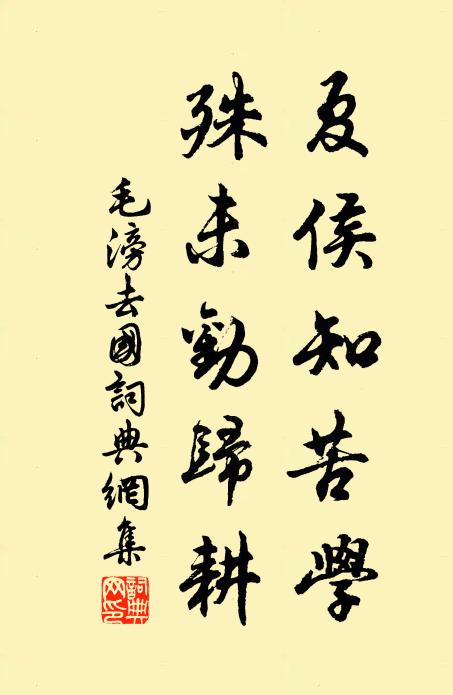 夏侯知苦學
殊未勸歸耕
毛滂去國詞典網集
詞典网印